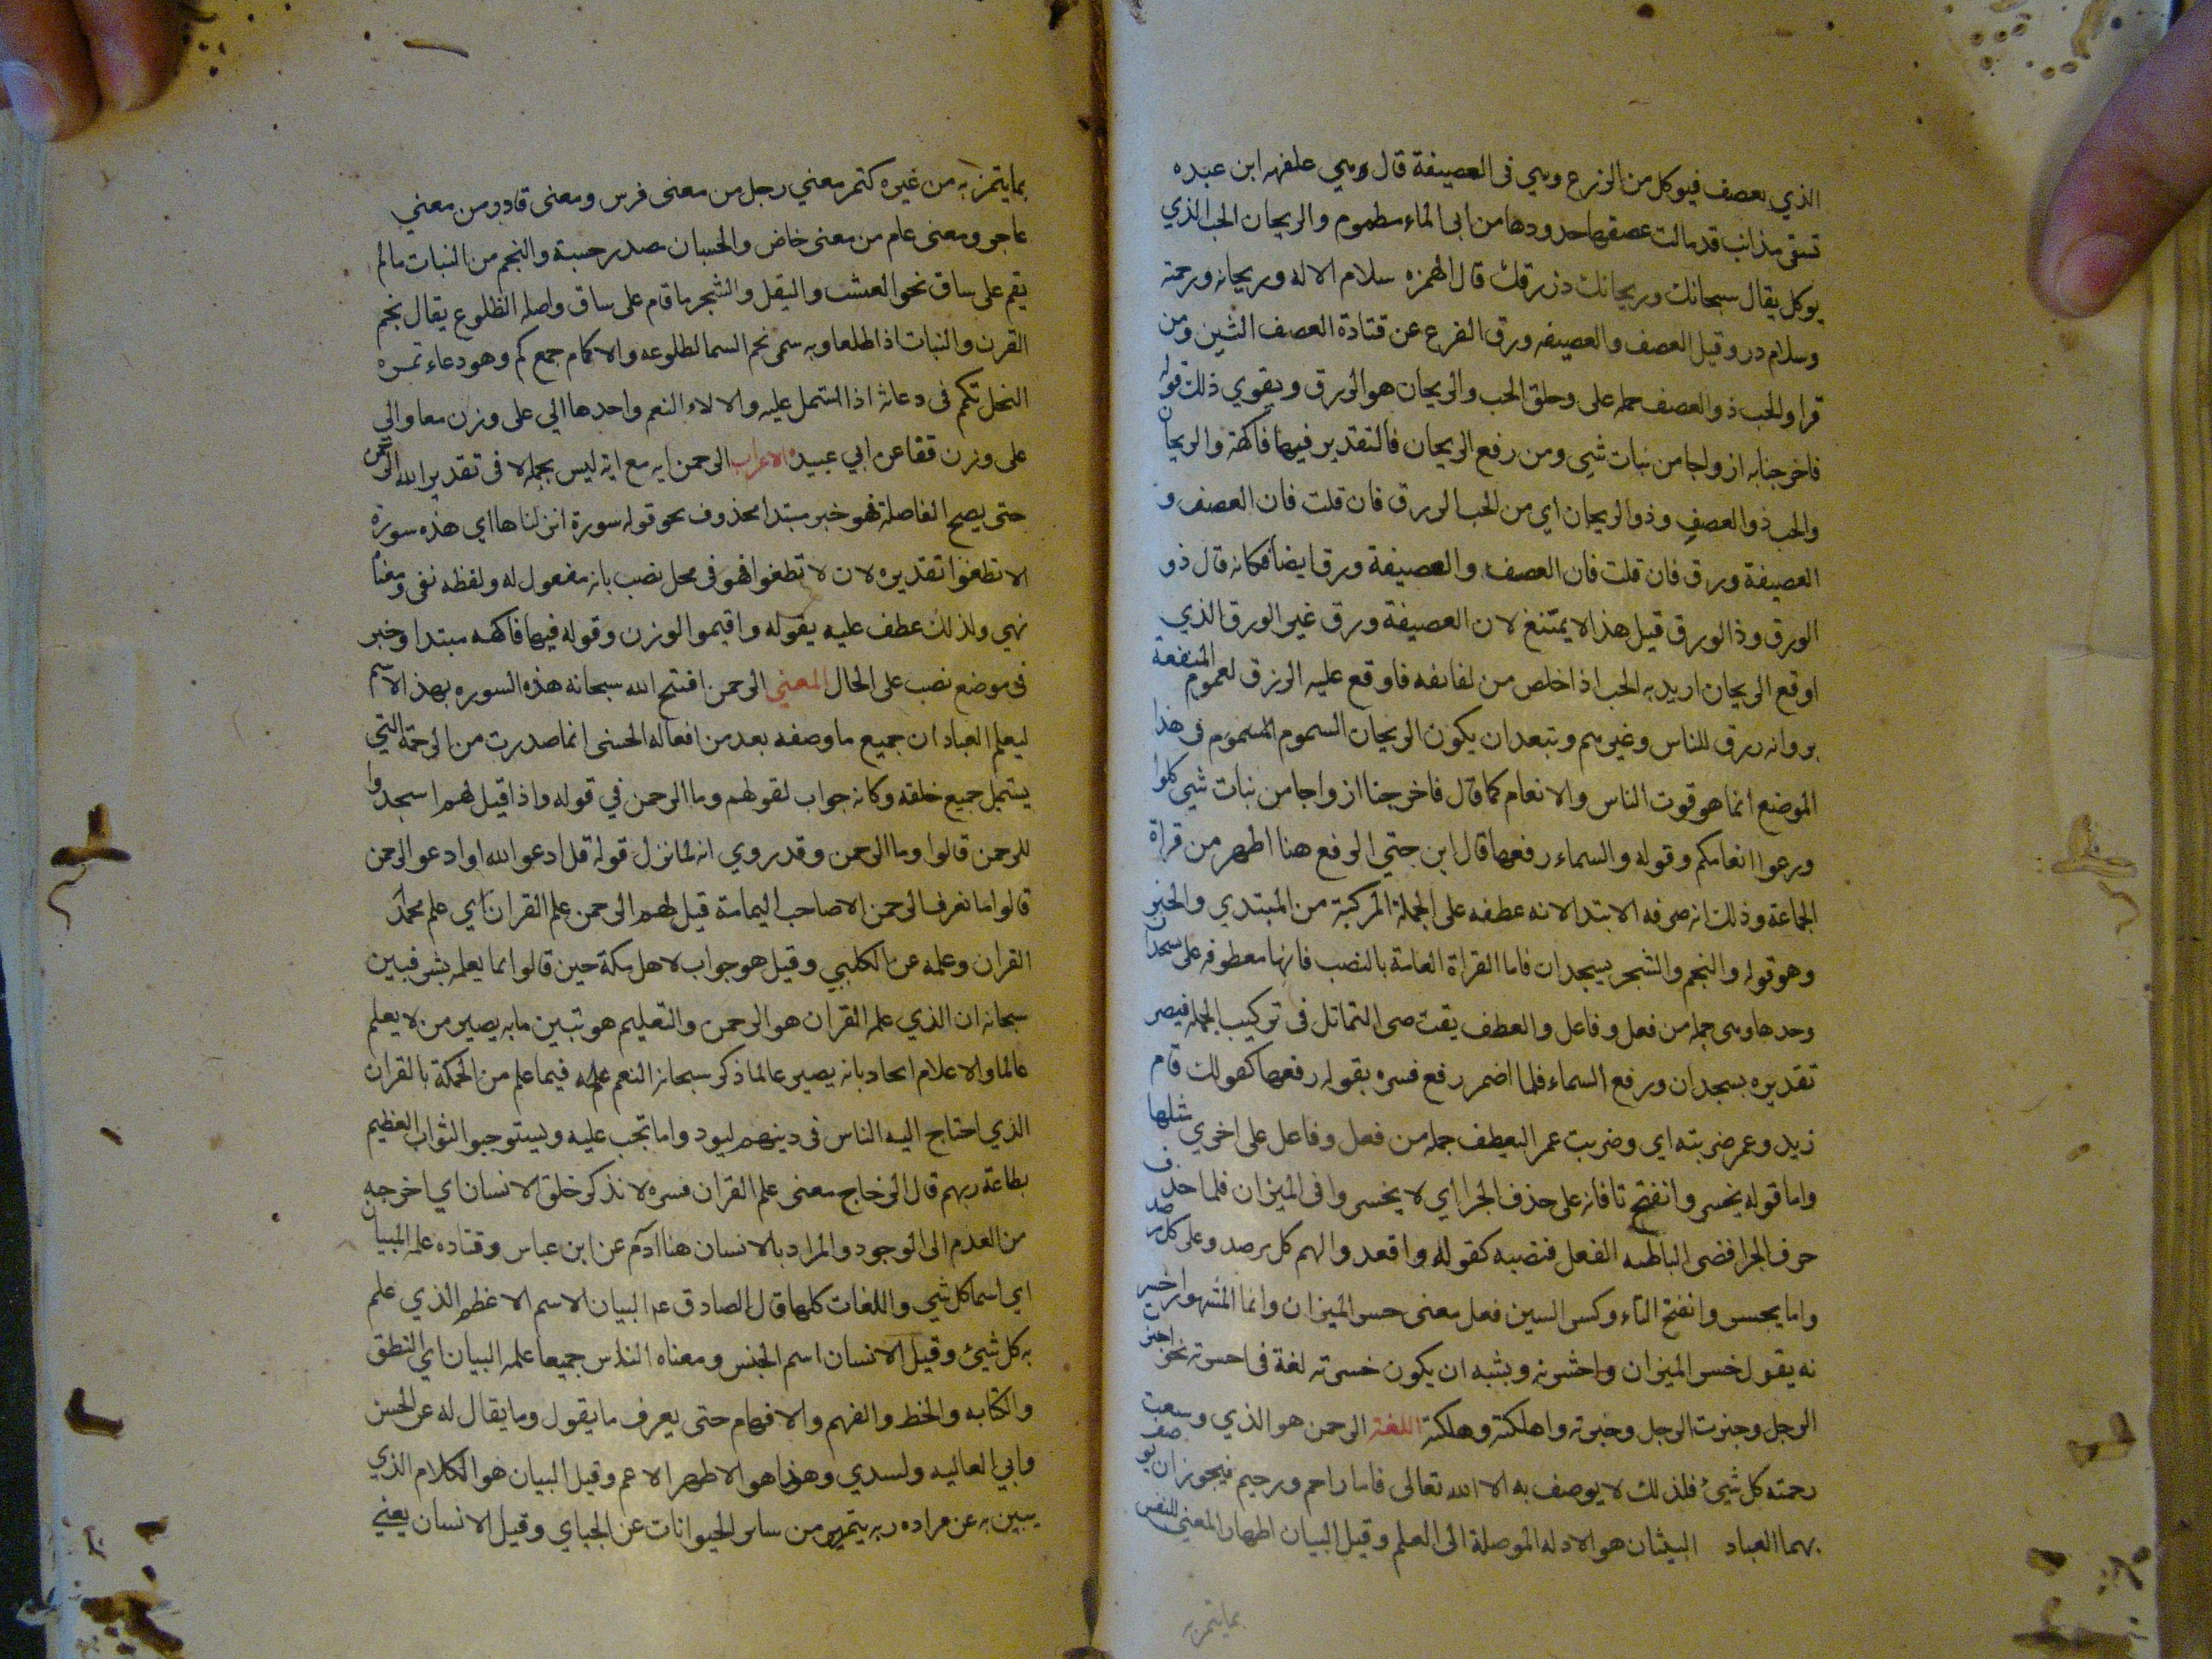 الذي يعصف فيوكل من الزرع وهي في العصيفة قال وهي علفهه ابن عبده
تسقى مذانب قد مالت عصفها حدودها من اتى الماء مطموم والريحان الحب الذي
يوكل يقال سبحانك وريحانك وزرقك قال الهمزه سلام الاله وريحانه ورحمته
وسلام درر وقيل العصف والعصيفه ورق الفرع عن قتادة العصف التين ومن
قرا والحب ذو العصف حمله على وخلق الحب والريحان هو الورق ويقوي ذلك قوله
فاخرجنا به ازواجا من نبات شي ومن رفع الريحان فالتقدير فيها فاكهة والريحان
والحب ذو العصف وذو الريحان اي من الحب الورق فان قلت فان العصف و
العصيفة ورق فان قلت فان العصف والعصيفة ورق ايضا فكانه قال ذو
الورق وذ الورق قيل هذا لا يمتنع لان العصيفة ورق غير الورق الذي
اوقع الريحان اريد به الحب اذا خلص من لفائفه فاوقع عليه الرزق لعموم المنفعة
بر وانه رزق للناس وغيرهم ويبعد ان يكون الريحان السموم المشموم في هذا
الموضع انما هو قوت الناس والانعام كما قال فاخرجنا ازواجا من نبات شي كلوا
ورعوا انعامكم وقوله والسماء رفعها قال ابن جني الرفع هنا اظهر من قراة
الجماعة وذلك انه صرفه الابتدا لانه عطفه على الجملة المركبة من المبتدي والخبر
وهو قوله والنجم والشجر يسجدان فاما القراة العامة بالنصب فانها معطوفه على يسجدان
وحدها وهي جملة من فعل وفاعل والعطف يقتضى التماثل في تركيب الجمله فيصير
تقديره يسجدان ورفع السماء فلما اضمر رفع فسره بقوله رفعها كقولك قام
زيد وعمر ضربته اي وضربت عمر اليعطف جمله من فعل وفاعل على اخري مثلها
واما قوله يخسر وا نفتح تا فانه على حذف الجر اي لا يخسر وا فى الميزان فلما حذف
حرف الجر افضى الباطنه الفعل فنصبه كقوله واقعد والهم كل مرصد وعلى كل مرصد
واما يخسر وا نفتح التاء وكسر السين فعل معنى خسر الميزان وانما المشهور اخسر
نه يقول خسر الميزان واخسرته ويشبه ان يكون خسرته لغة في اخسرته نحو اجبرت
الرجل وجبرت الرجل وجبرته واهلكته وهلكته اللغة الرحمن هو الذي وسعت
رحمته كل شيئ فلذلك لا يوصف به الا الله تعالى فاما راحم ورحيم فيجوز ان يوصف
بهما العباد البيثان هو الادله الموصلة الى العلم وقيل البيان اظهار المعنى للنفس
بما يتميز به
بما يتميز به من غيره كتمير معني رجل من معنى فرس ومعنى قادر من معني
عاجر ومعنى عام من معنى خاص والحسبان مصدر حسبة والنجم من النبات ما لم
يقم على ساق نحو العشب والبقل والشجر ما قام على ساق واصله الظلوع يقال نجم
القرن والنبات اذا طلعا وبه سمى نجم السما لطلوعه والاكمام جمع كم وهو دعاء تمره
النخل تكم فى دعائه اذا اشتمل عليه والالاء النعم واحدها الي على وزن معا والي
على وزن قفا عن ابي عبيده الاعراب الرحمن ايه مع انه ليس بجمله لا فى تقدير الله الرحمن
حتى يصح الفاصلة فهو خبر مبتدا محذوف نحو قوله سورة انزلناها اي هذه سورة
الا تطغوا تقديره لان لا تطغوا فهو فى محل نصب بانه مفعول له ولفظه نفى ومعناه
نهي ولذلك عطف عليه بقوله واقيموا الوزن وقوله فيها فاكهه مبتدا وخبر
فى موضع نصب على الحال المعني الرحمن افتتح الله سبحانه هذه السوره بهذ الاسم
ليعلم العباد ان جميع ما وصفه بعد من افعاله الحسنى انما صدرت من الرحمة التي
يشتمل جميع خلقه وكانه جواب لقولهم وما الرحمن في قوله واذا قيل لهم اسجدوا
للرحمن قالوا وما الرحمن وقد روي انه لما نزل قوله قل ادعو الله او ادعو الرحمن
قالوا ما نعرف الرحمن الا صاحب اليمامة قيل لهم الرحمن علم القران اي علم محمد
القران وعلمه عن الكلبي وقيل هو جواب لاهل مكة حين قالوا انما يعلمه بشر فبين
سبحانه ان الذي علم القران هو الرحمن والتعليم هو تبين ما به يصير من لا يعلم
عالما والاعلام ايجاد بانه يصير عالما ذكر سبحانه النعم عليه فيما علم من الحكمة بالقران
الذي احتاج اليه الناس فى دينهم ليود واما تجب عليه ويستوجبوا الثواب العظيم
بطاعة ربهم قال الزجاج معنى علم القران فسره لا نذكر خلق الانسان اي اخرجه
من العدم الى الوجود والمراد بالانسان هنا ادم عن ابن عباس وقتاده علمه البيان
اي اسما كل شي واللغات كلها قال الصادق عه البيان الاسم الاعظم الذي علم
به كل شيئ وقيل الانسان اسم الجنس ومعناه الناس جميعا علمه البيان اي النطق
والكتابه والخط والفهم والافهام حتى يعرف ما يقول وما يقال له عن الحسن
وابي العاليه ولسدي وهذا هو الاظهر الاعم وقيل البيان هو الكلام الذي
يبين به عن مراده وبه يتميز من سائر الحيوانات عن الجباي وقيل الانسان يعني